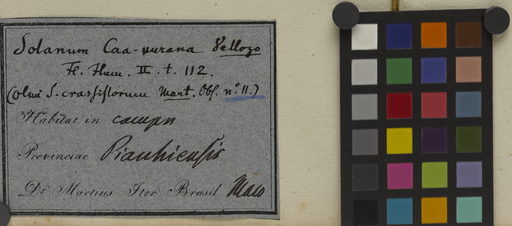 Solanum Caa-vurana Vellozo
Fl. Flum. II. t. 112.
(olim S. crassiflorum Mart. Obs. n. 11.)
Habitat in campis
Provinciae Piauhiensis
Dr Martius Iter Brasil. Maio